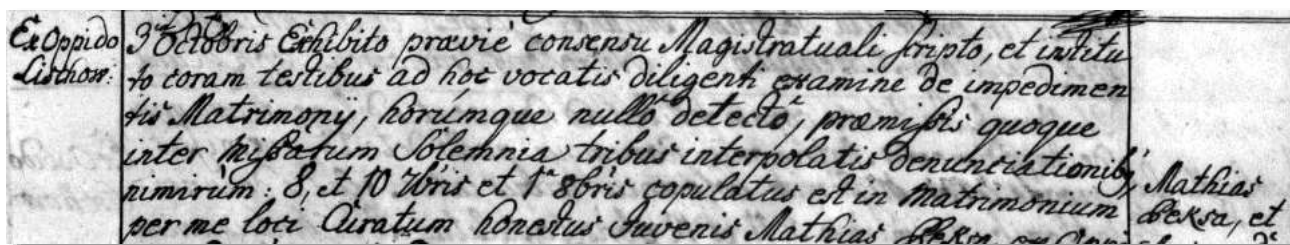 Ex Oppido
Lischow:
3 Octobris Exhibito prævie consensu Magistratuali scripto, et institu
to coram testibus ad hoc vocatis diligenti examine de impedimen
tis Matrimonÿ, horúmque nullô detectô, præmissis quoque
inter Missarum Solemnia tribus interpolatis denunciationibꝰ,
nimirùm: 8, et 10 7bris et 1ª 8bris copulatus est in Matrimonium
per me loci Curatum honestus Juvenis Mathias
Mathias
Beksa, et